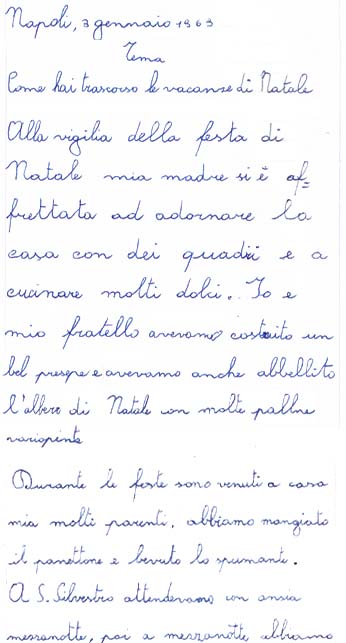 Napoli, 3 gennaio 1969
Tema
Come hai trascorso le vacanze di Natale
Alla vigilia della festa di
Natale mia madre si è af=
frettata ad adornare la
casa con dei quadri e a
cucinare molti dolci. Io e
mio fratello avevamo costruito un
bel presepe e avevamo anche abbellito
l'albero di Natale con molte palline
variopinte
Durante le feste sono venuti a casa
mia molti parenti, abbiamo mangiato
il panettone e bevuto lo spumante.
A S. Silvestro attendevamo con ansia
mezzanotte, poi a mezzanotte abbiamo